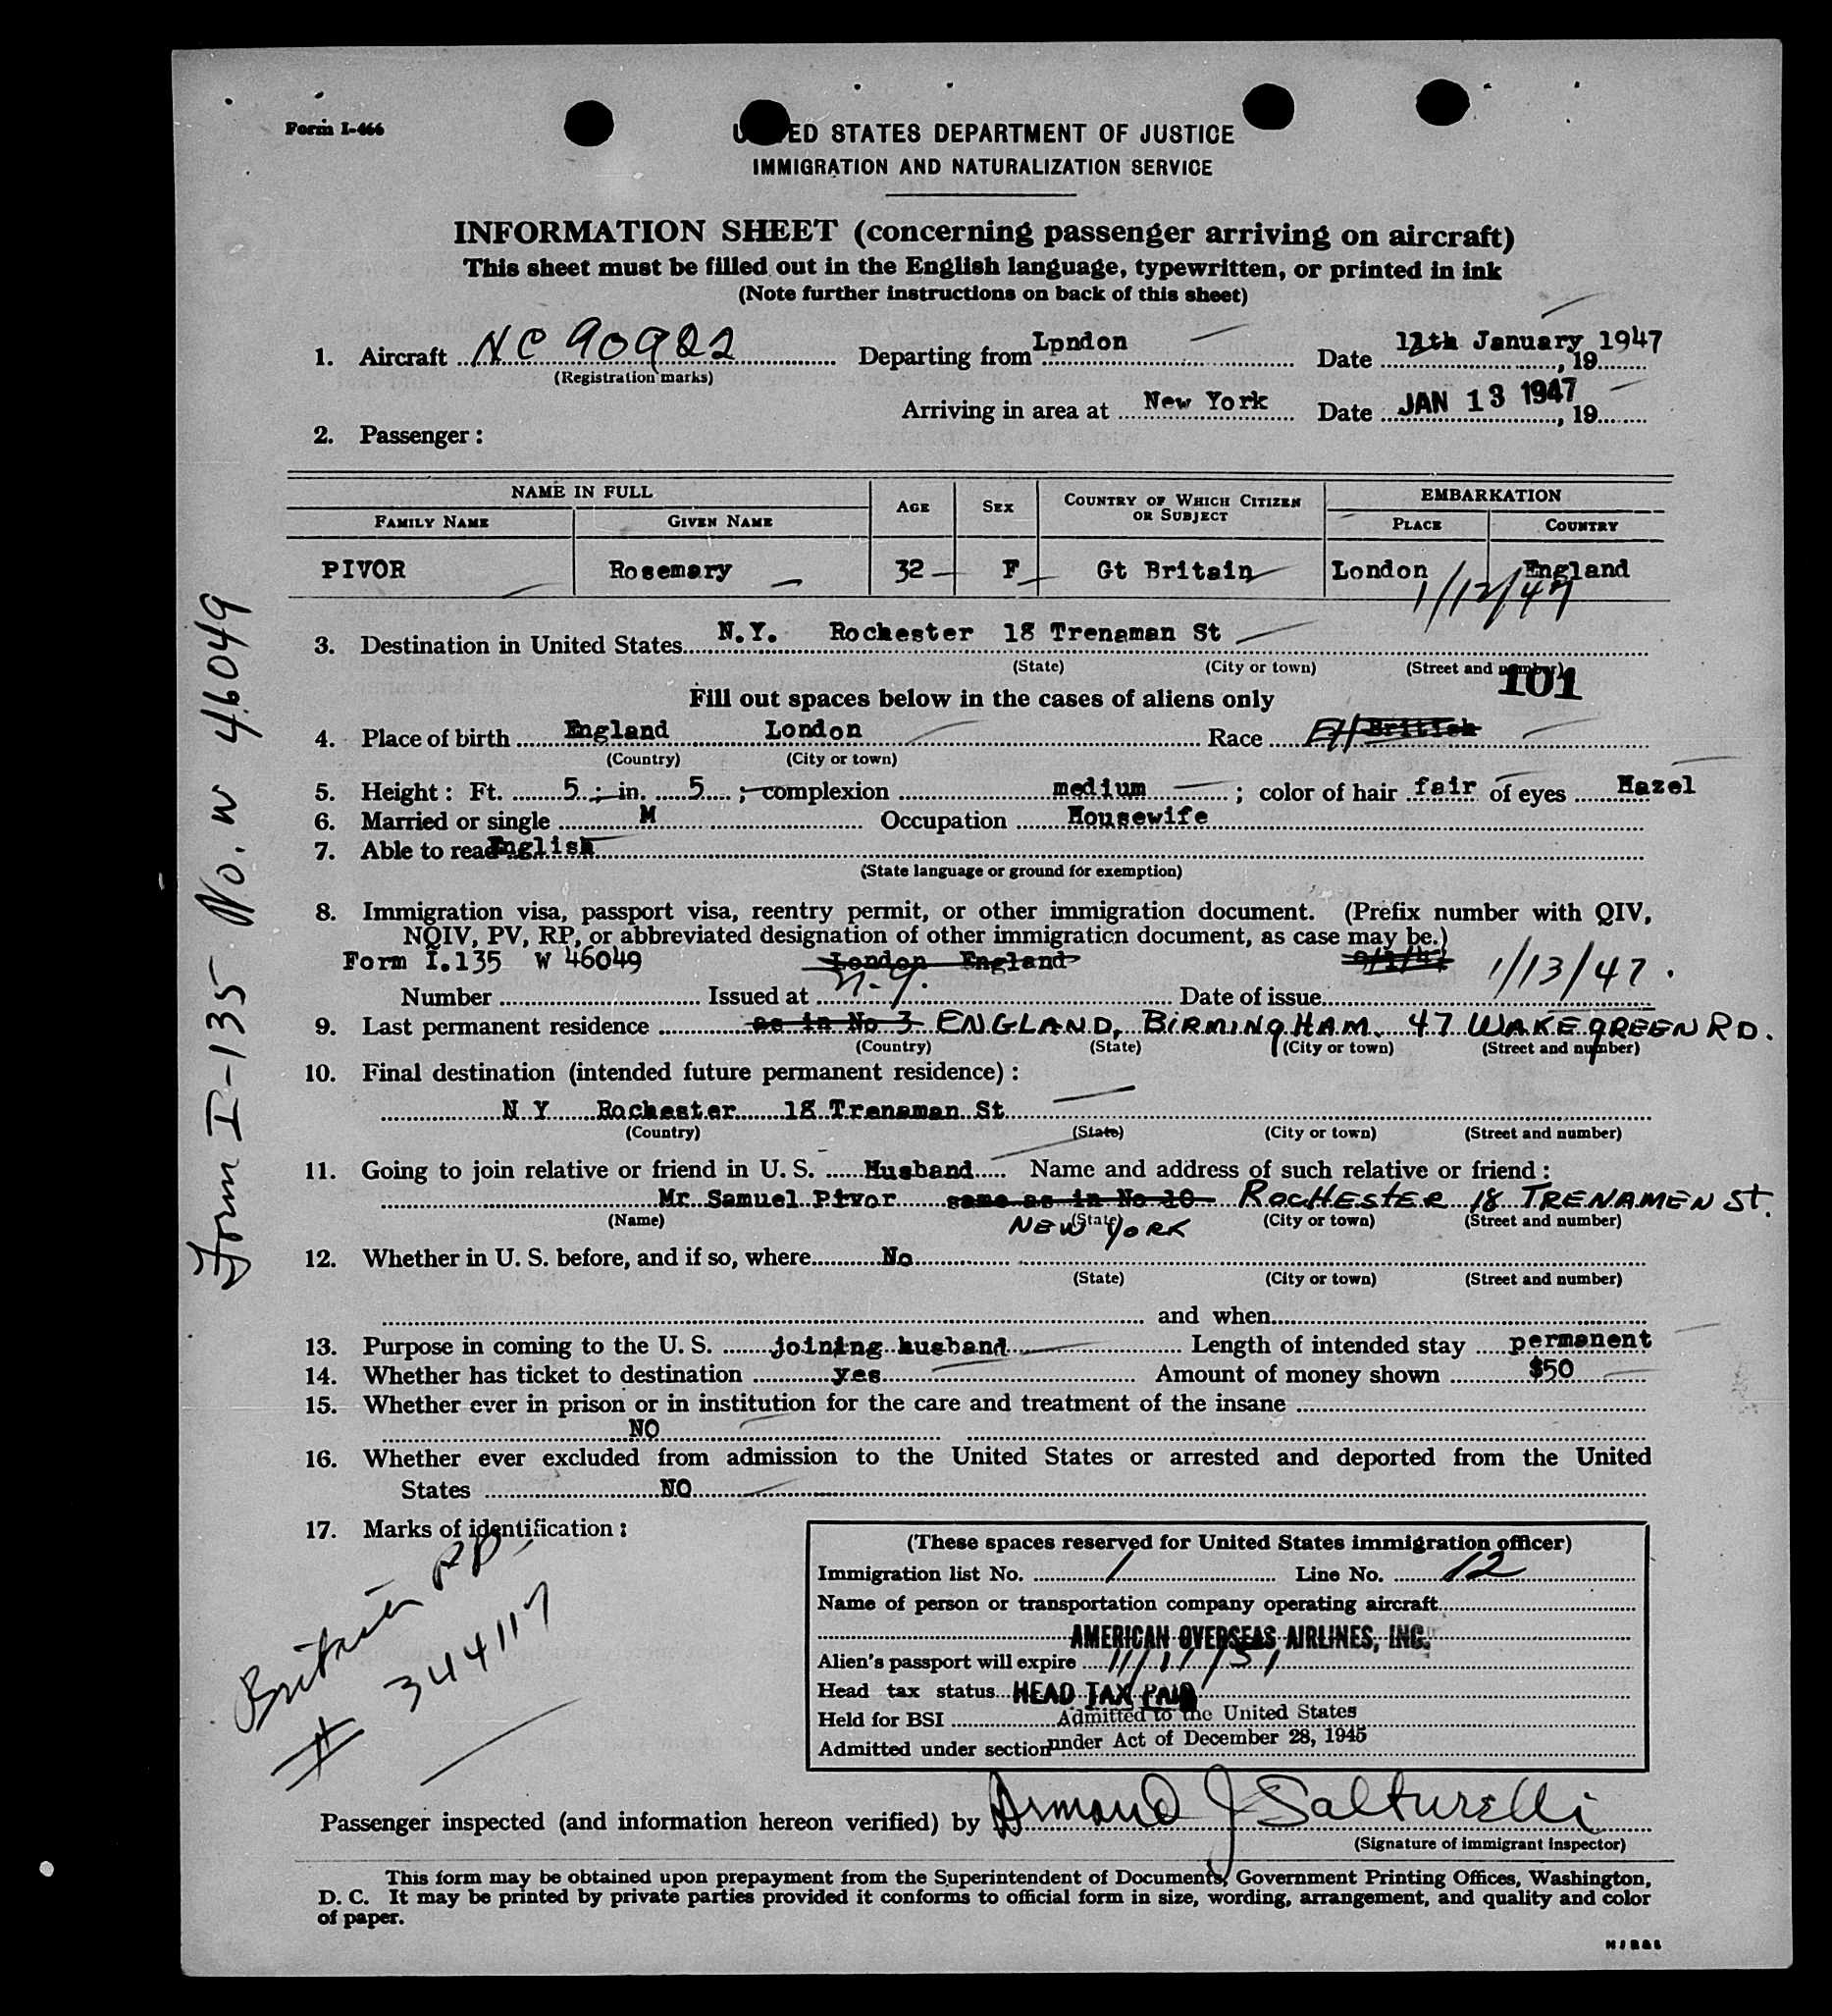 Form I-466
UNITED STATES DEPARTMENT OF JUSTICE
IMMIGRATION AND NATURALIZATION SERVICE
INFORMATION SHEET (concerning passenger arriving on aircraft)
This sheet must be filled out in the English language, typewritten, or printed in ink
(Note further instructions on back of this sheet)
1. Aircraft NC 90922 Departing from London Date January 1947, 19
(Registration marks)
Arriving in area at New York Date JAN 13 1947, 19
2. Passenger:
NAME IN FULL AGE SEX COUNTRY OF WHICH CITIZEN OR SUBJECT EMBARKATION
FAMILY NAME GIVEN NAME PLACE COUNTRY
PIVOR Rosemary 32 F Gt Britain London England
1/12/47
3. Destination in United States N.Y. Rochester 18 Trenaman St
(State) (City or town) (Street and number)
101
Fill out spaces below in the cases of aliens only
4. Place of birth England London Race British
(Country) (City or town)
5. Height: Ft. 5; in. 5; complexion medium; color of hair fair of eyes Hazel
6. Married or single M Occupation Housewife
7. Able to read English
(State language or ground for exemption)
8. Immigration visa, passport visa, reentry permit, or other immigration document. (Prefix number with QIV,
NQIV, PV, RP, or abbreviated designation of other immigration document, as case may be.)
Form I.135 W 46049 London England 1/13/47.
Number Issued at N.Y. Date of issue
9. Last permanent residence as in No 3 ENGLAND, BIRMINGHAM. 47 WAKEGREEN RD.
(Country) (State) (City or town) (Street and number)
10. Final destination (intended future permanent residence):
N Y Rochester 18 Trenaman St
(Country) (State) (City or town) (Street and number)
11. Going to join relative or friend in U. S. Husband Name and address of such relative or friend:
Mr Samuel Pivor same as in No 10 ROCHESTER 18 TRENAMEN ST.
(Name) (State) (City or town) (Street and number)
NEW YORK
12. Whether in U. S. before, and if so, where No
(State) (City or town) (Street and number)
and when
13. Purpose in coming to the U. S. joining husband Length of intended stay permanent
14. Whether has ticket to destination yes Amount of money shown $50
15. Whether ever in prison or in institution for the care and treatment of the insane
NO
16. Whether ever excluded from admission to the United States or arrested and deported from the United
States NO
17. Marks of identification:
British PP.
# 344117
(These spaces reserved for United States immigration officer)
Immigration list No. 1 Line No. 12
Name of person or transportation company operating aircraft
AMERICAN OVERSEAS AIRLINES, INC.
Alien's passport will expire 11/11/51
Head tax status HEAD TAX PAID
Held for BSI Admitted to the United States
Admitted under section under Act of December 28, 1945
Passenger inspected (and information hereon verified) by Armand J Salturelli
(Signature of immigrant inspector)
This form may be obtained upon prepayment from the Superintendent of Documents, Government Printing Offices, Washington,
D. C. It may be printed by private parties provided it conforms to official form in size, wording, arrangement, and quality and color
of paper.
Form I-135 No. W 46049